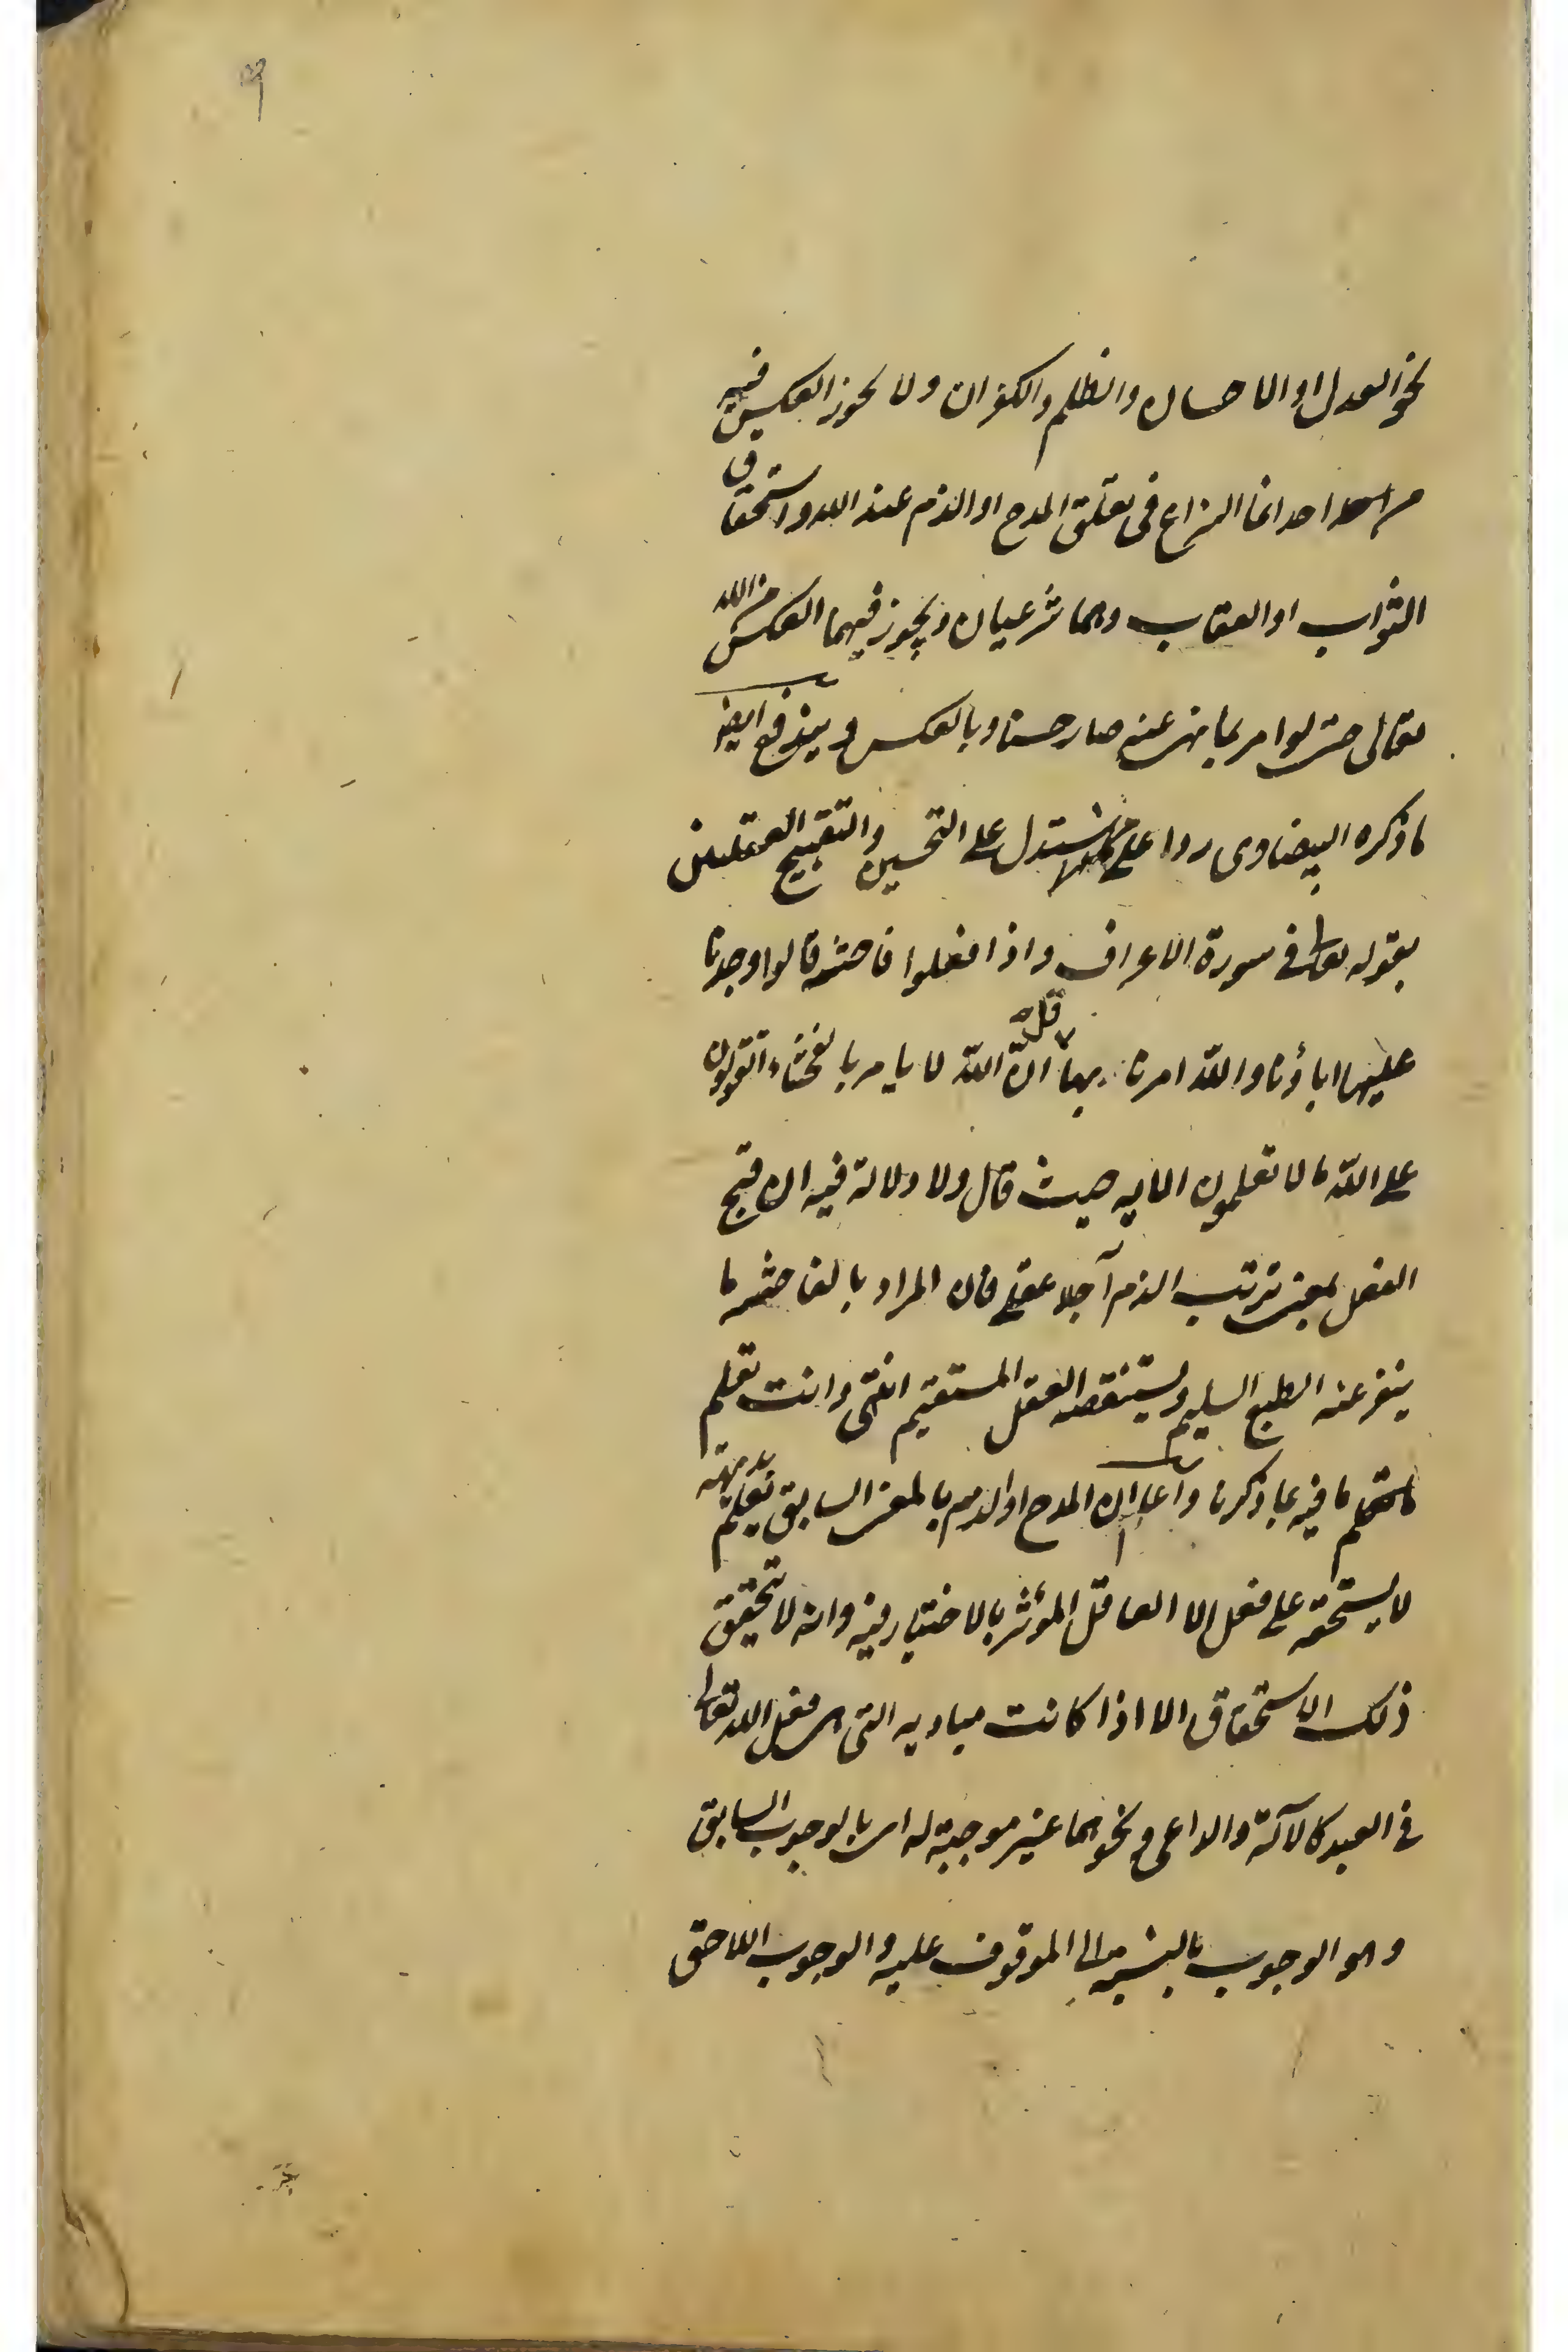 ٩
نحو العدل او الاحسان والظلم والكفران ولا يجوز العكس فيه
من احد انما النزاع فى تعلق المدح او الذم عند الله واستحقاق
الثواب او العقاب وهما شرعيان ويجوز فيهما العكس من الله
تعالى حتى لو امر بما نهى عنه صار حسنا وبالعكس ويندفع ايضا
ما ذكره البيضاوى ردا على من استدل على التحسين والتقبيح العقليين
بقوله تعالى فى سورة الاعراف واذا فعلوا فاحشة قالوا وجدنا
عليها اباؤنا والله امرنا بها قل انّ الله لا يامر بالفحشاء اتقولون
على الله ما لا تعلمون الايه حيث قال ولا دلالة فيه ان قبح
الفعل بمعنى ترتب الذم آجلا عقلى فان المراد بالفاحشة ما
ينفر عنه الطبع السليم ويستنقصه العقل المستقيم انتهى وانت تعلم
ما فيه بما ذكرنا واعلم ان المدح او الذم بالمعنى السابق نعلم بديهة
لا يستحقه على فعل الا العاقل المؤثر بالاختيار فيه وانه لا يتحقق
ذلك الاستحقاق الا اذا كانت مباديه التى هى فعل الله تعالى
فى العبد كالآلة والداعى ونحوهما غير موجبة له اى بالوجوب السابق
وهو الوجوب بالنسبة الى الموقوف عليه والوجوب اللاحق